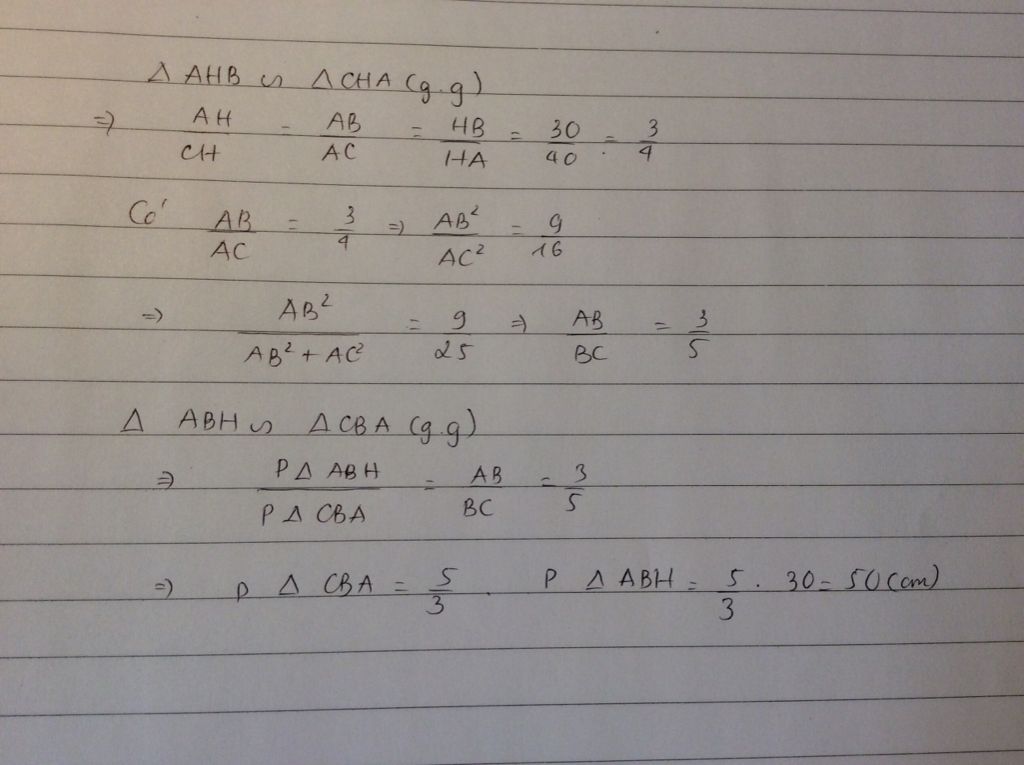 Δ AHB ∽ Δ CHA (g.g)
⇒ AH/CH = AB/AC = HB/HA = 30/40 = 3/4
Có AB/AC = 3/4 ⇒ AB²/AC² = 9/16
⇒ AB²/AB² + AC² = 9/25 ⇒ AB/BC = 3/5
Δ ABH ∽ Δ CBA (g.g)
⇒ P Δ ABH/P Δ CBA = AB/BC = 3/5
⇒ P Δ CBA = 5/3 . P Δ ABH = 5/3 . 30 = 50 (cm)